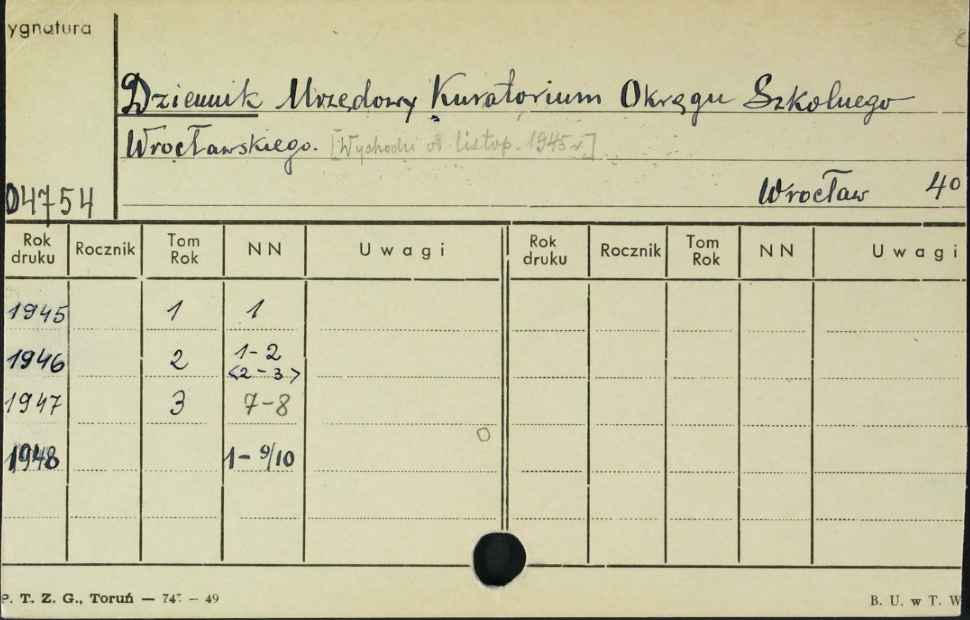 ygnatura
Dziennik Urzędowy Kuratorium Okręgu Szkolnego
Wrocławskiego. [Wychodzi od listop. 1945 r.]
04754
Wrocław 4º
Rok druku Rocznik Tom Rok NN Uwagi Rok druku Rocznik Tom Rok NN Uwagi
1945 1 1
1946 2 1-2
<2-3>
1947 3 7-8
1948 1-9/10
P. T. Z. G., Toruń — 49
B. U. w T. W